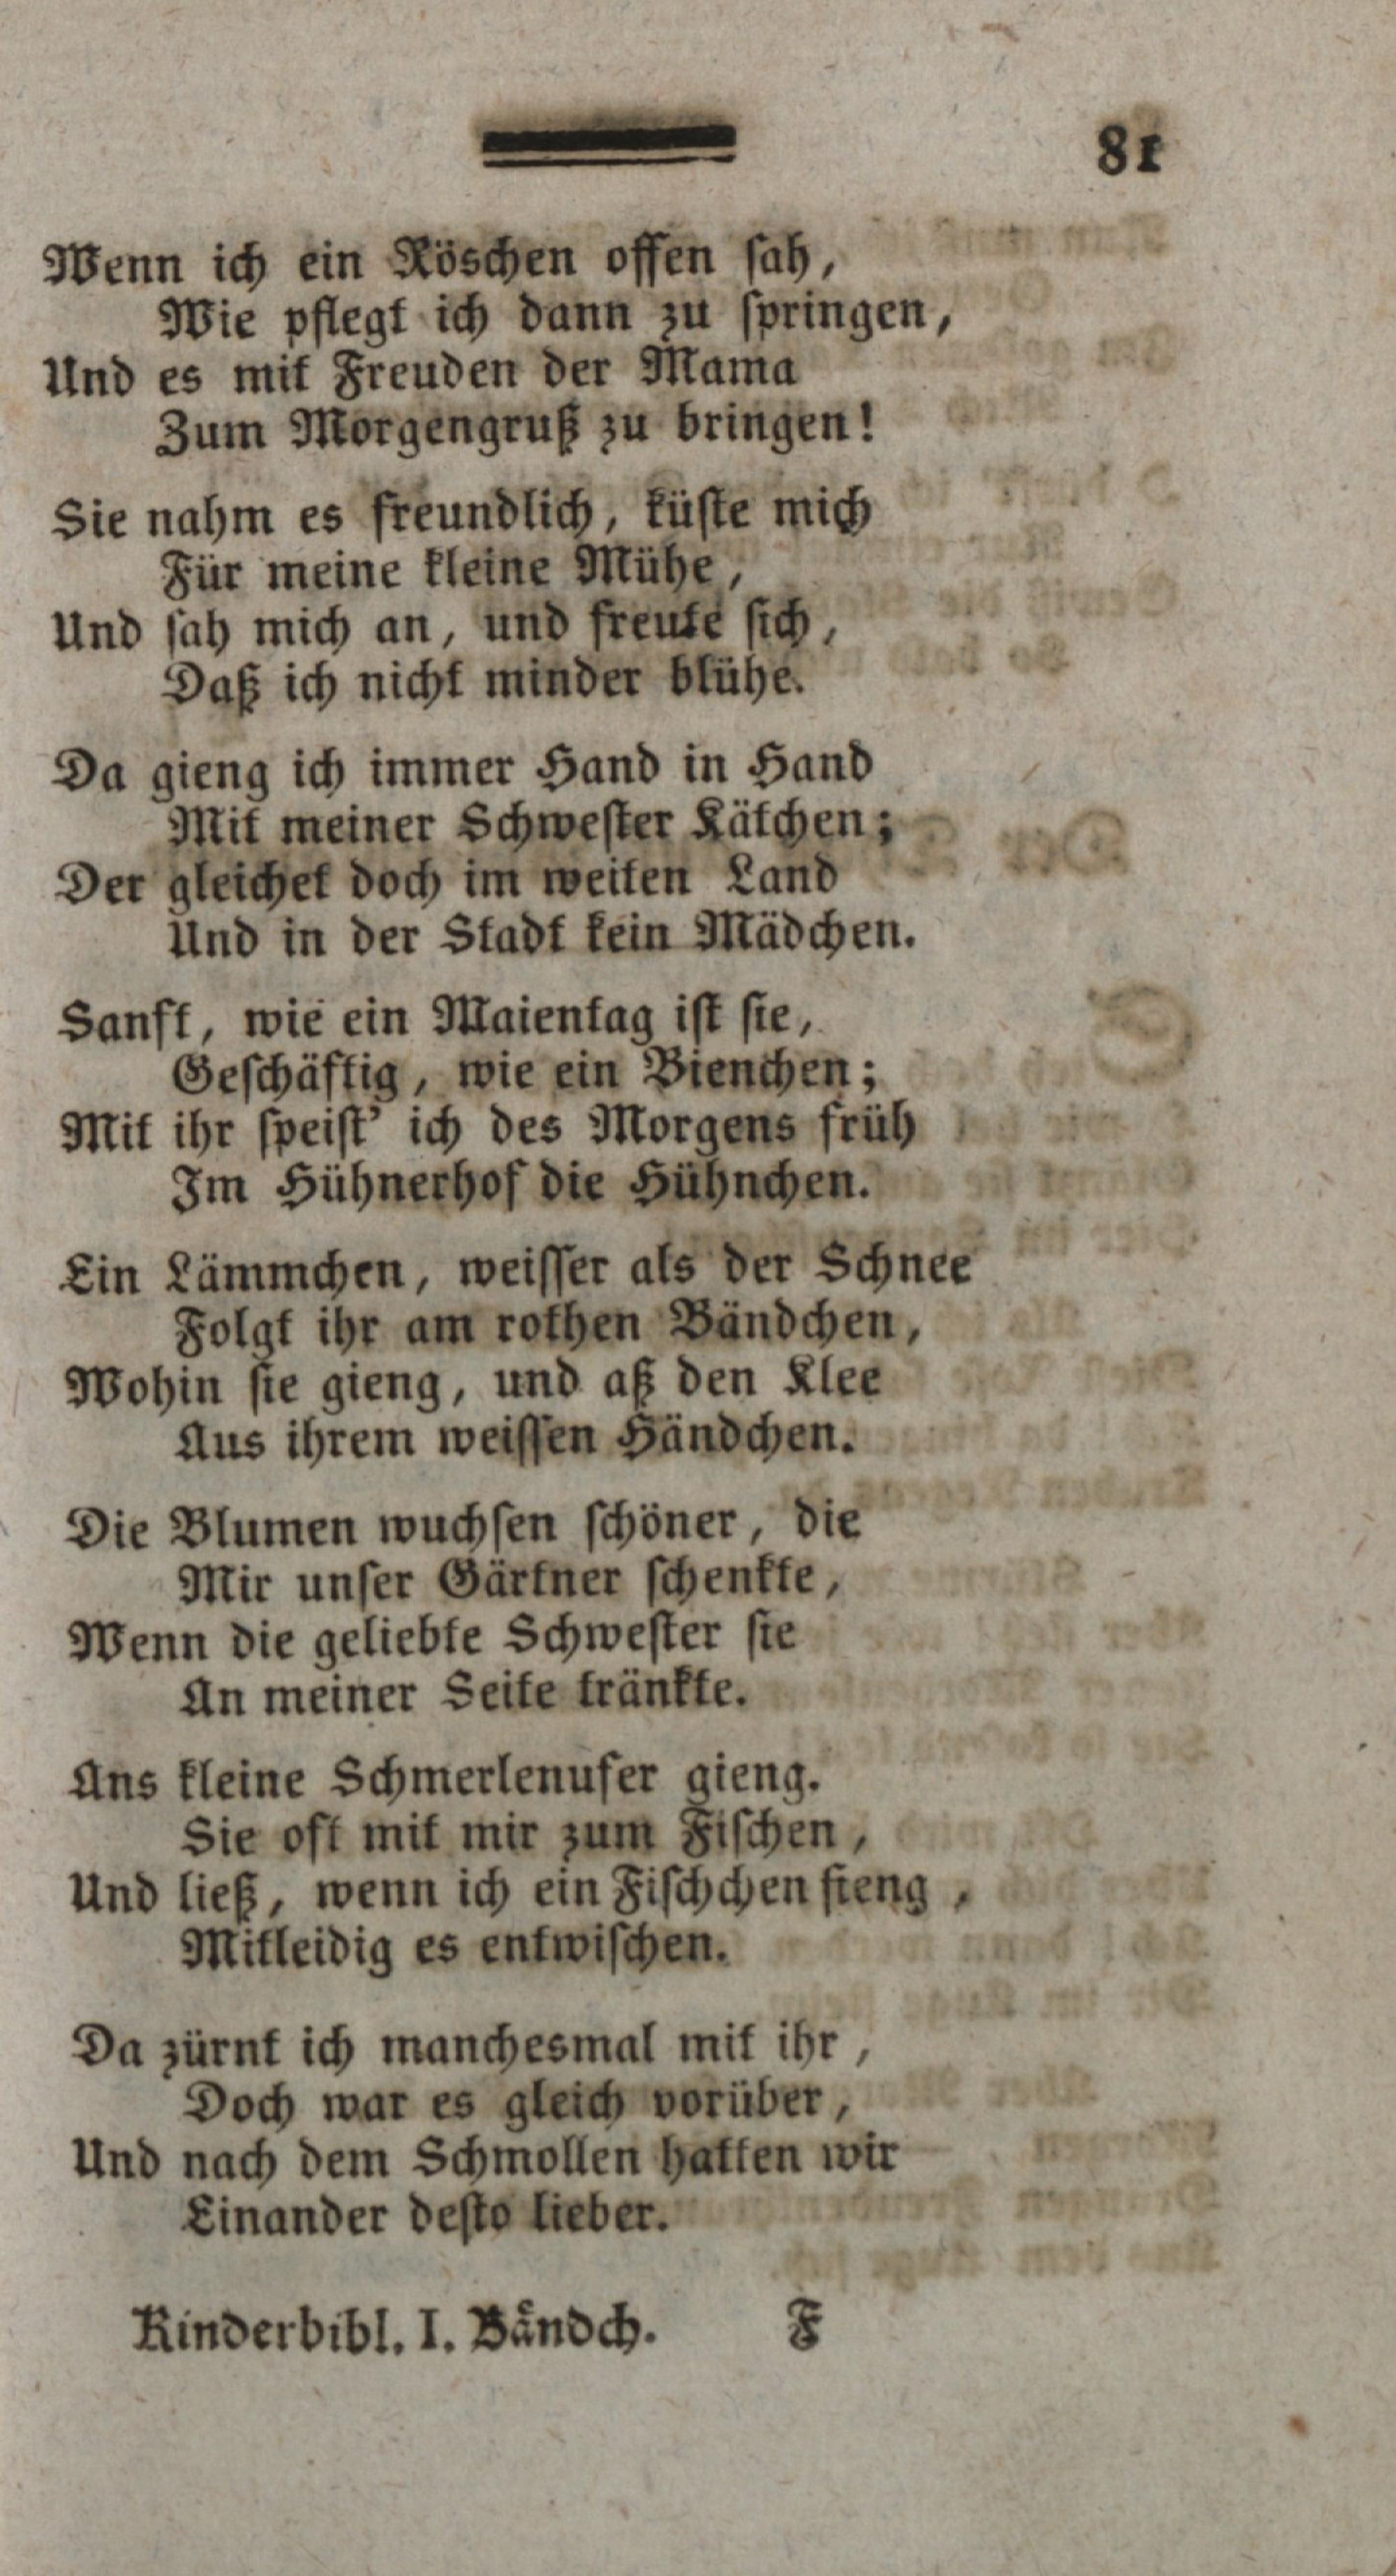 81
Wenn ich ein Röschen offen ſah,
Wie pflegt ich dann zu ſpringen,
Und es mit Freuden der Mama
Zum Morgengruß zu bringen!
Sie nahm es freundlich, küſte mich
Für meine kleine Mühe,
Und ſah mich an, und freute ſich,
Daß ich nicht minder blühe.
Da gieng ich immer Hand in Hand
Mit meiner Schweſter Kätchen;
Der gleichet doch im weiten Land
Und in der Stadt kein Mädchen.
Sanft, wie ein Maientag iſt ſie,
Geſchäftig, wie ein Bienchen;
Mit ihr ſpeiſt' ich des Morgens früh
Im Hühnerhof die Hühnchen.
Ein Lämmchen, weiſſer als der Schnee
Folgt ihr am rothen Bändchen,
Wohin ſie gieng, und aß den Klee
Aus ihrem weiſſen Händchen.
Die Blumen wuchſen ſchöner, die
Mir unſer Gärtner ſchenkte,
Wenn die geliebte Schweſter ſie
An meiner Seite tränkte.
Ans kleine Schmerlenufer gieng.
Sie oft mit mir zum Fiſchen,
Und ließ, wenn ich ein Fiſchchen fieng,
Mitleidig es entwiſchen.
Da zürnt ich manchesmal mit ihr,
Doch war es gleich vorüber,
Und nach dem Schmollen hatten wir
Einander deſto lieber.
Kinderbibl. I. Bändch. F